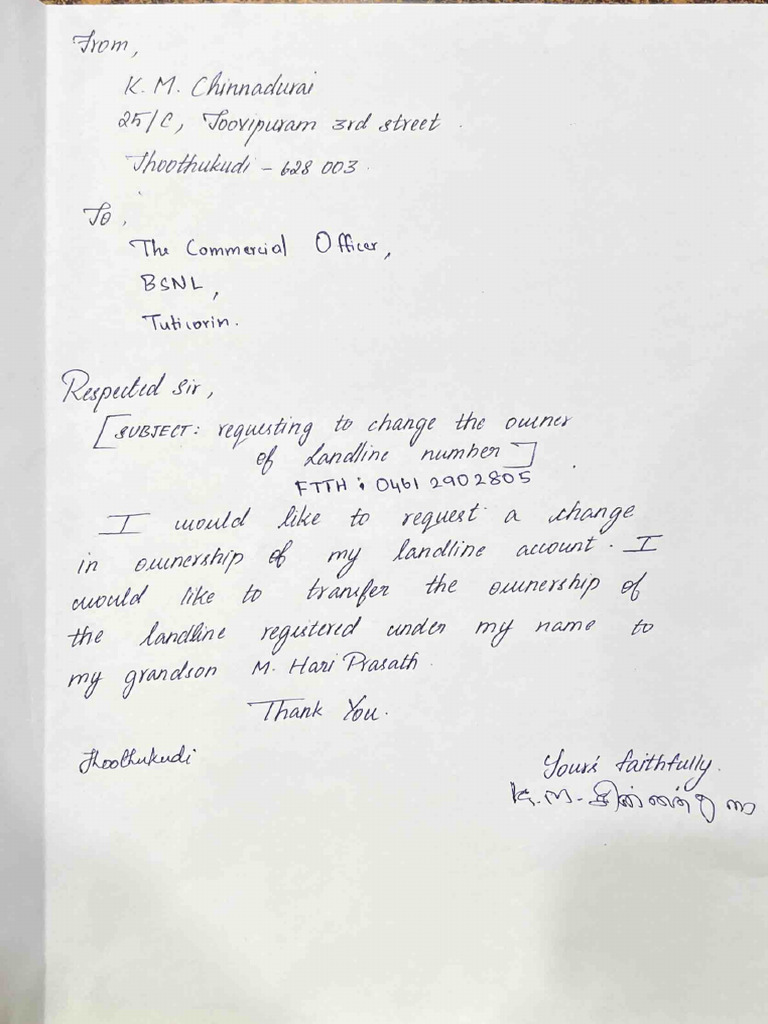 From,
K. M. Chinnadurai
25/C, Toovipuram 3rd street
Thoothukudi - 628 003.
To,
The Commercial Officer,
BSNL,
Tuticorin.
Respected Sir,
[SUBJECT: requesting to change the owner
of Landline number]
FTTH : 0461 2902805
I would like to request a change
in ownership of my landline account. I
would like to transfer the ownership of
the landline registered under my name to
my grandson M. Hari Prasath.
Thank You.
Thoothukudi
Your's faithfully.
K.M.